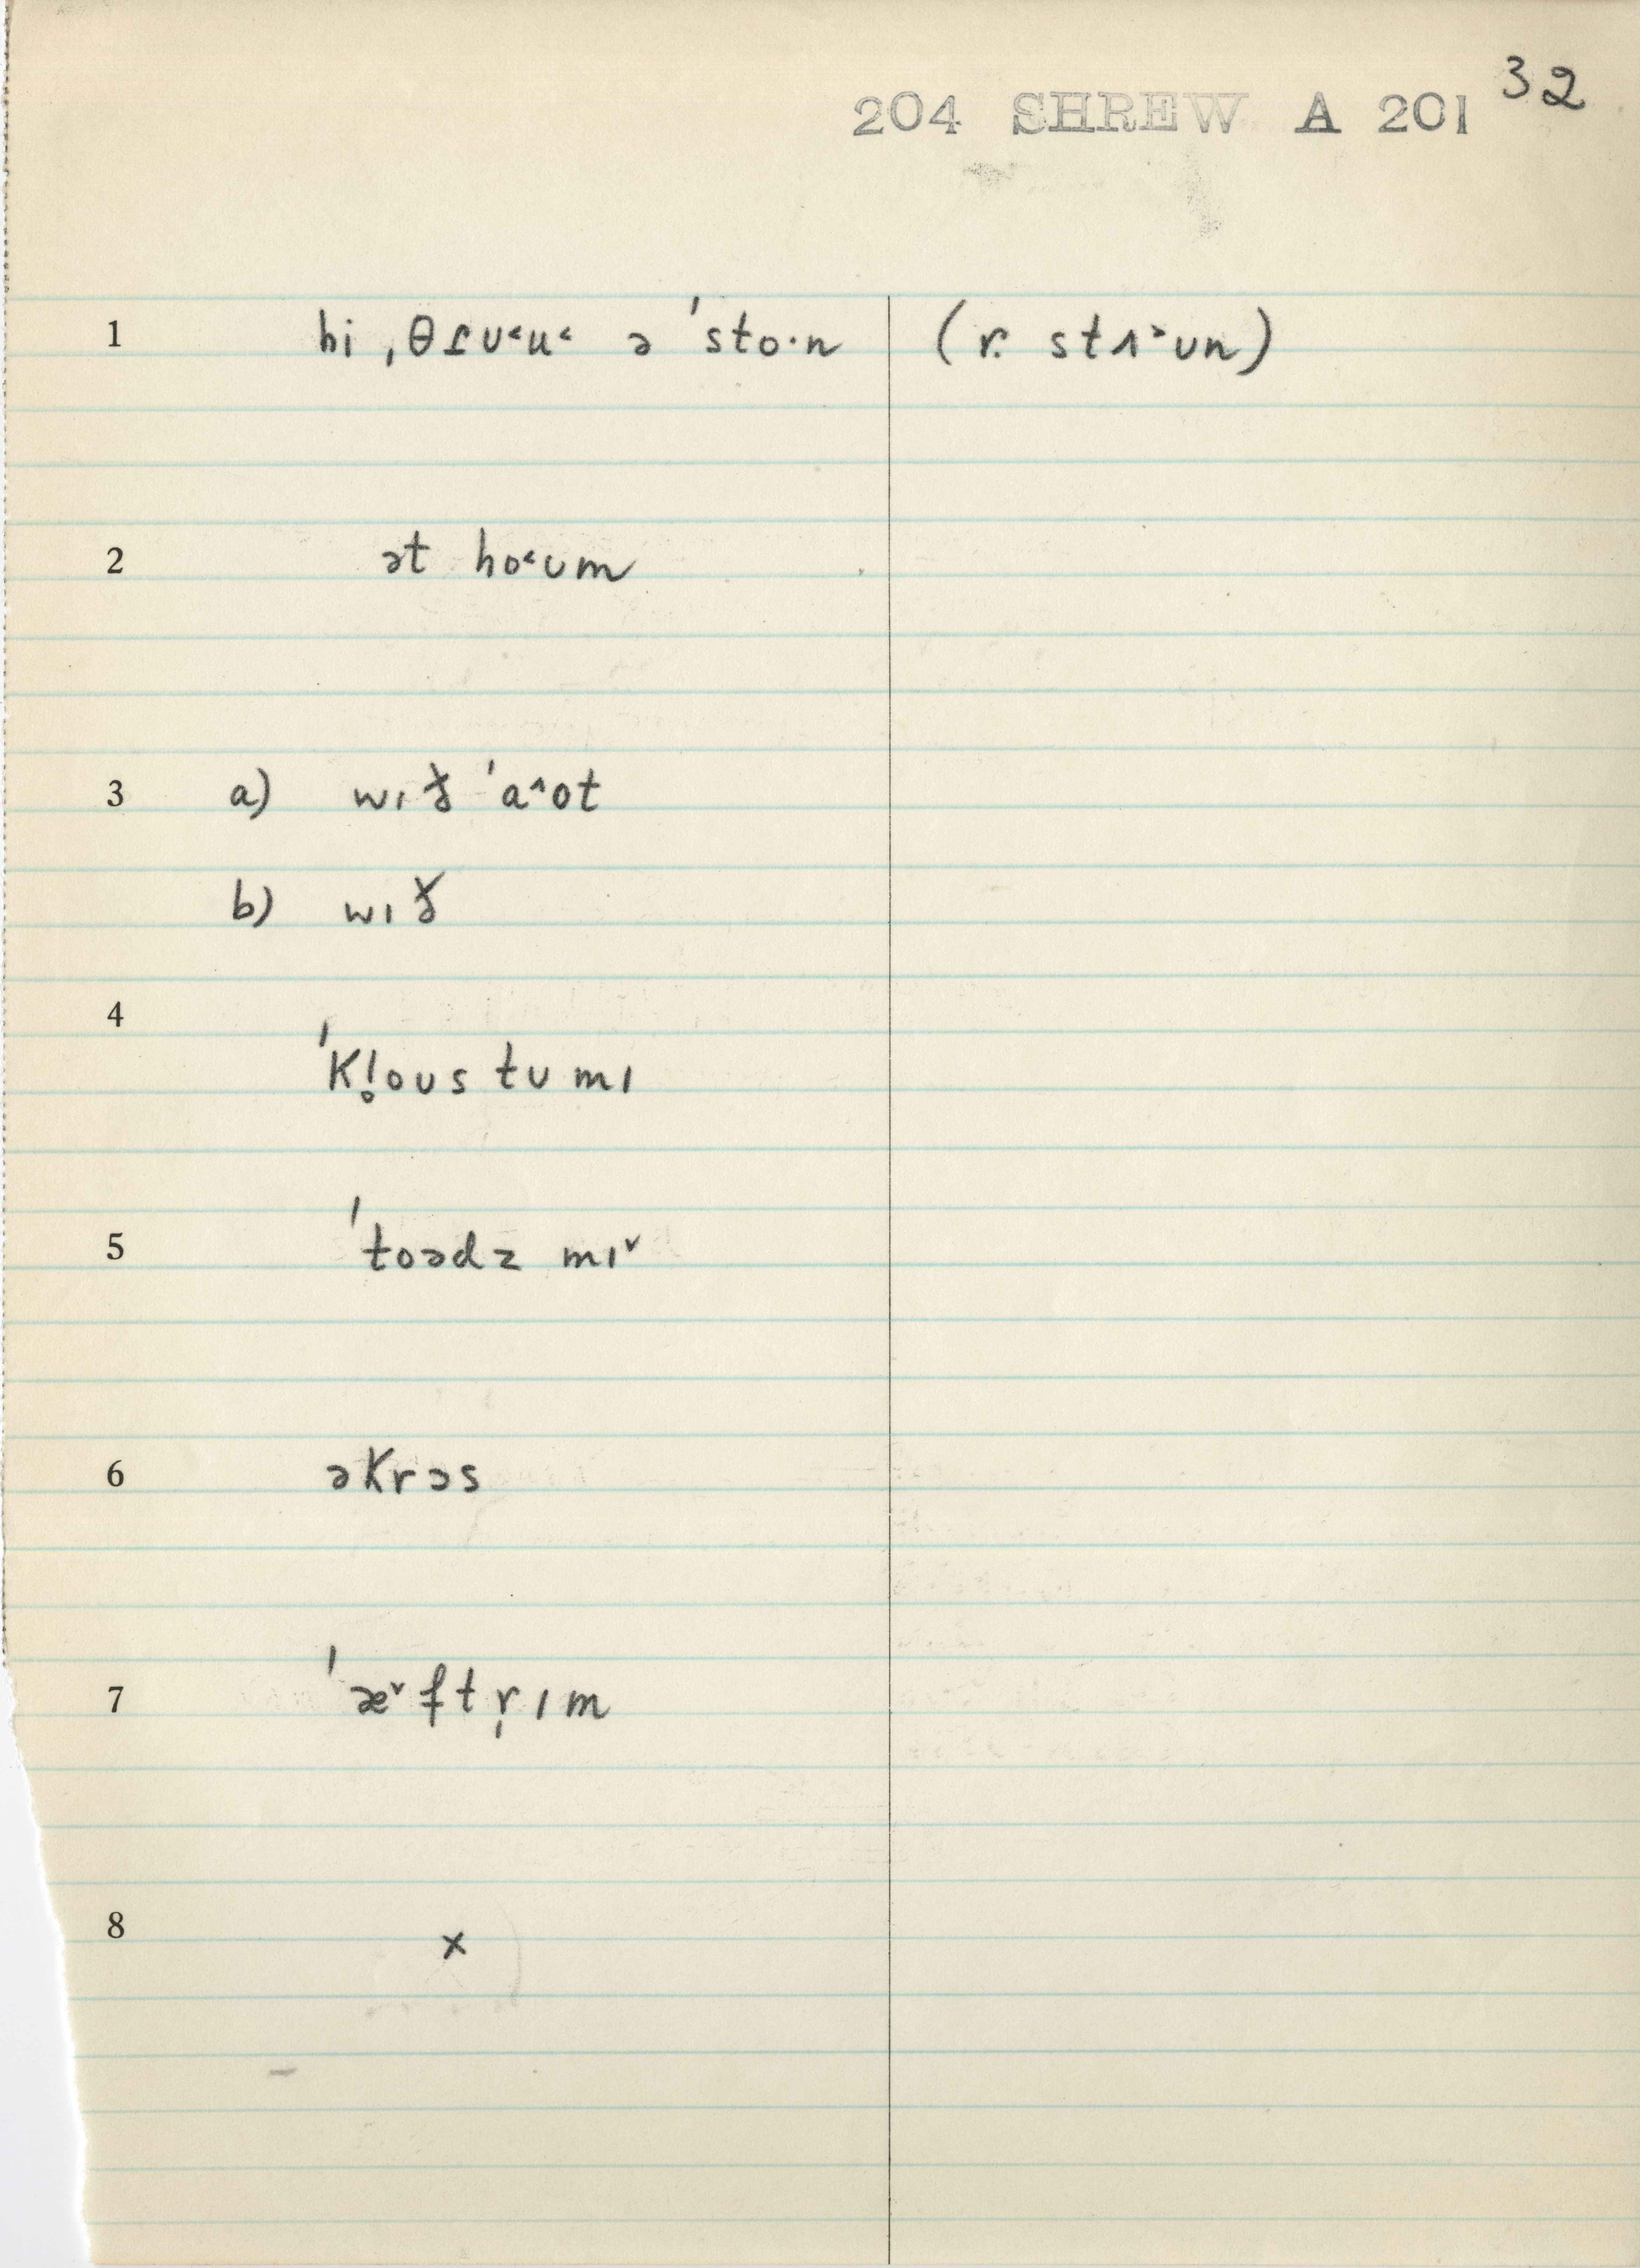 204 SHREW A 201 32
1 hi ˌθɾʊ˂u˂ ə ˈsto·n (r. stʌ˃ʊn)
2 ət ho˂ʊm
3 a) wɪɤ̵ ˈa˄ot
b) wɪɤ̵
4 ˈKl̥oʊs tʊ mɪ
5 ˈtoədz mɪ˅
6 əKrəs
7 ˈæ˅ftr̩ɪm
8 x